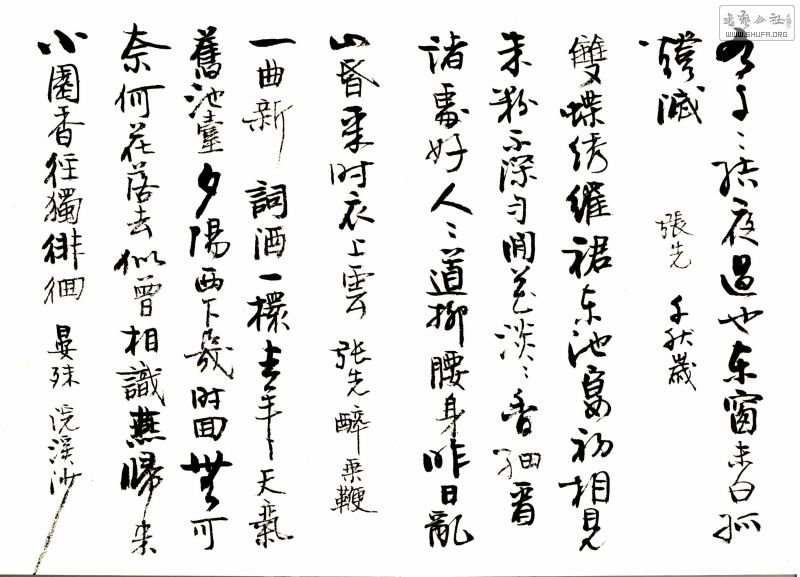 有千〻結夜過也东窗未白孤
燈滅 張先 千秋歲
雙蝶綉羅裙东池宴初相見
朱粉不深勻閒花淡〻香細看
諸處好人〻道柳腰身昨日亂
山昏來时衣上雲 張先 醉垂鞭
一曲新詞酒一杯去年天氣
舊池臺夕陽西下幾时回無可
奈何花落去似曾相識燕歸来
小園香徑獨徘徊 晏殊 浣溪沙
書藝公社
WWW.SHUFA.ORG